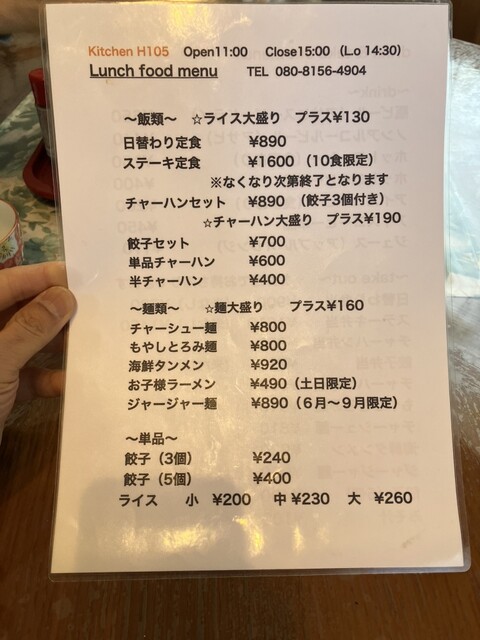 Kitchen H105 Open11:00 Close15:00 (L.o 14:30)
Lunch food menu TEL 080-8156-4904
～飯類～ ☆ライス大盛り プラス¥130
日替わり定食 ¥890
ステーキ定食 ¥1600 (10食限定)
※なくなり次第終了となります
チャーハンセット ¥890 (餃子3個付き)
☆チャーハン大盛り プラス¥190
餃子セット ¥700
単品チャーハン ¥600
半チャーハン ¥400
～麺類～ ☆麺大盛り プラス¥160
チャーシュー麺 ¥800
もやしとろみ麺 ¥800
海鮮タンメン ¥920
お子様ラーメン ¥490(土日限定)
ジャージャー麺 ¥890(6月～9月限定)
～単品～
餃子(3個) ¥240
餃子(5個) ¥400
ライス 小 ¥200 中¥230 大 ¥260